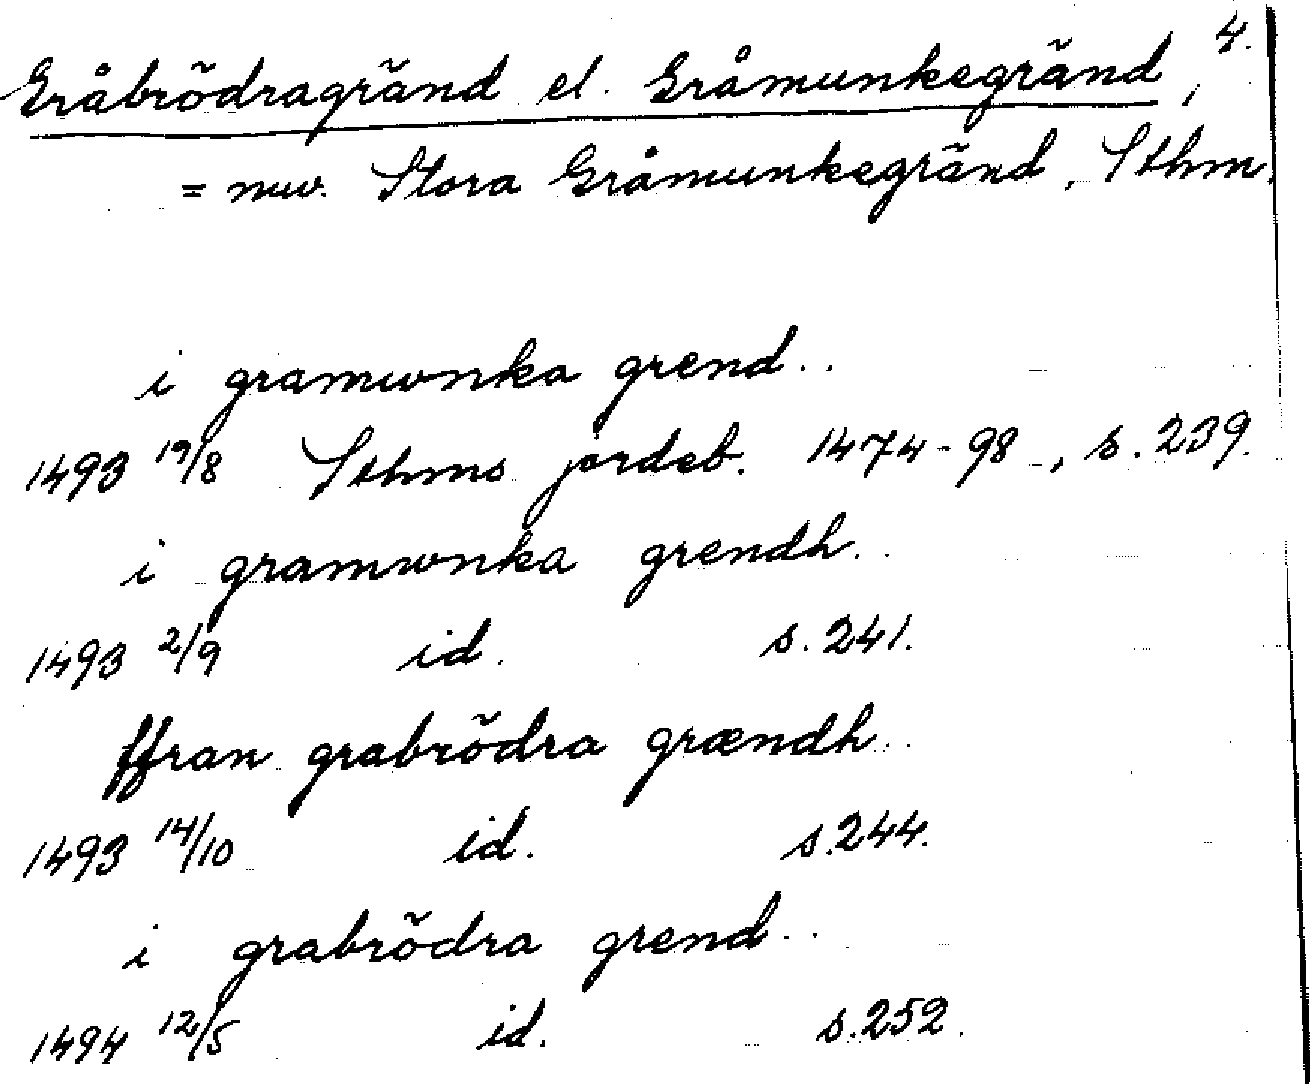 Gråbrödragränd el. Gråmunkegränd, 4.
= nuv. Stora Gråmunkegränd, Sthm.
i gramwnka grend..
1493 19/8 Sthms jordeb. 1474-98, s. 239.
i gramwnka grendh..
1493 2/9 id. s. 241.
ffran grabrödra grændh..
1493 14/10 id. s. 244.
i grabrödra grend..
1494 12/5 id. s. 252.